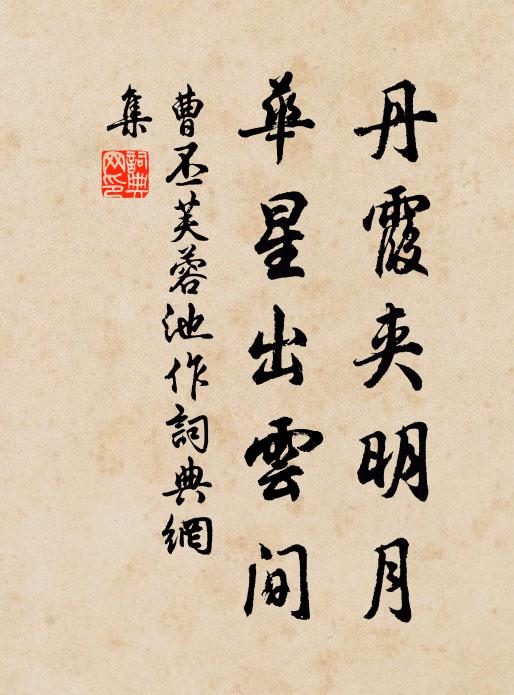 丹霞夾明月
華星出雲間
曹丕芙蓉池作詞典網
集
詞典網印